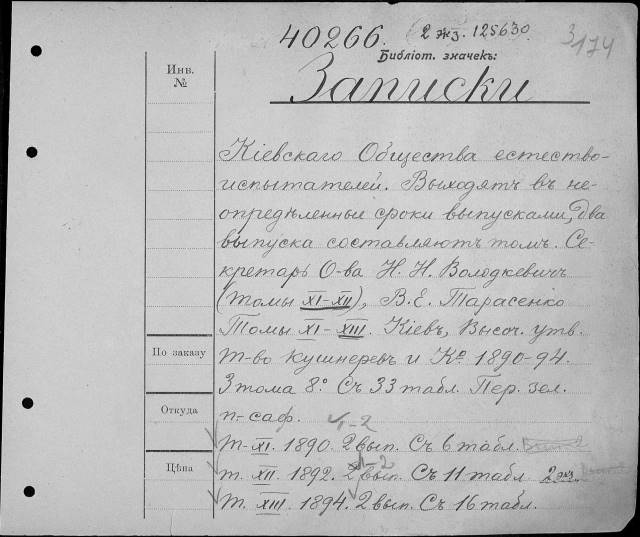 40266. 2 экз. 125630. 3174
Библіот. значекъ:
Инв.
№
Записки
Кіевскаго Общества естество-
испытателей. Выходятъ въ не-
опредѣленные сроки выпусками, два
выпуска составляютъ томъ. Се-
кретарь О-ва Н. Н. Володкевичъ
(томы XI-XII), В. Е. Тарасенко
Томы XI-XIII. Кіевъ, Высоч. утв.
По заказу
т-во Кушнеревъ и Ко 1890-94.
3 тома 8° Съ 33 табл. Пер. зел.
Откуда
п-саф. 1-2
Т. XI. 1890. 2 вып. Съ 6 табл.
1-2
Цѣна
т. XII. 1892. 2 вып. Съ 11 табл. 2 экз.
Т. XIII. 1894. 2 вып. Съ 16 табл.